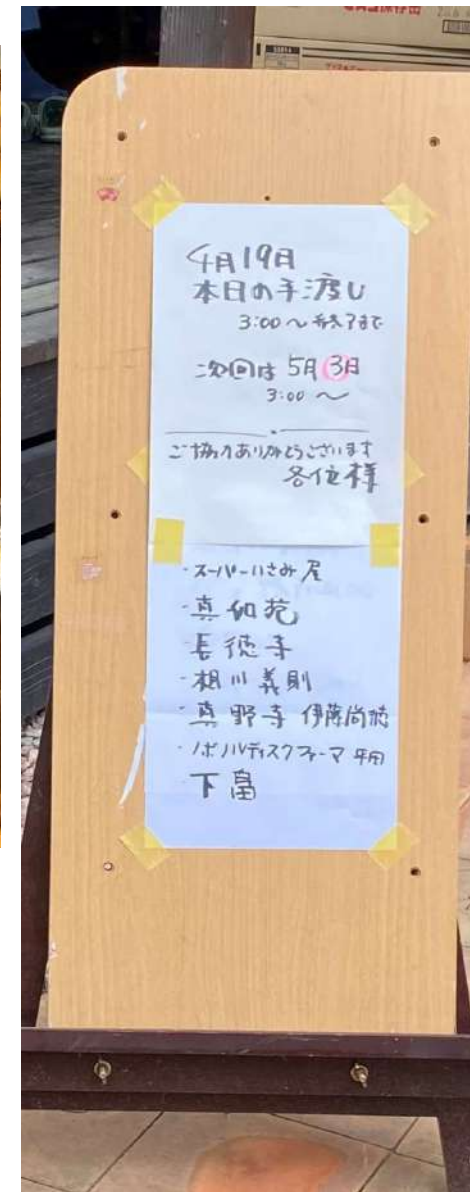 4月19日
本日の手渡し
3:00〜終了まで
次回は 5月3日
3:00〜
ご協力ありがとうございます
各位様
・スーパーいさみ屋
・真和苑
・長徳寺
・相川義則
・真野寺 伊藤尚徳
・ノボノルディスクファーマ
下畠